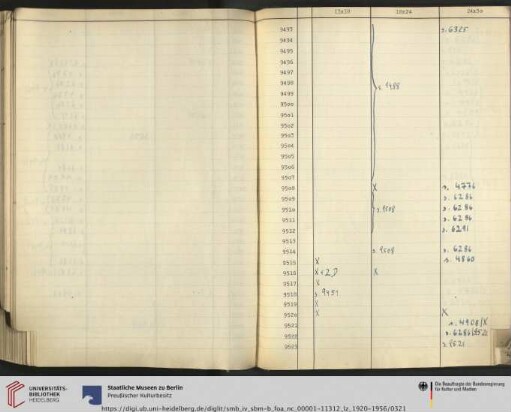 13x18 18x24 24x30
9493 s. 6325
9494
9495
9496
9497
9498
9499
9500
9501
9502
9503
9504
9505
9506
9507
9508 X s. 4776
9509 s. 6286
9510 s. 9508 s. 6286
9511 s. 6286
9512 s. 6291
9513
9514 s. 9508 s. 6286
9515 X s. 4860
9516 X X
9517 X
9518
9519 X
9520 X X
9521
9522
9523 s. 9521
UNIVERSITÄTS-
BIBLIOTHEK
HEIDELBERG
Staatliche Museen zu Berlin
Preußischer Kulturbesitz
Die Beauftragte der Bundesregierung
für Kultur und Medien
https://digi.ub.uni-heidelberg.de/diglit/smb_iv_sbm-b_foa_nc_00001-11312_lz_1920-1956/0321